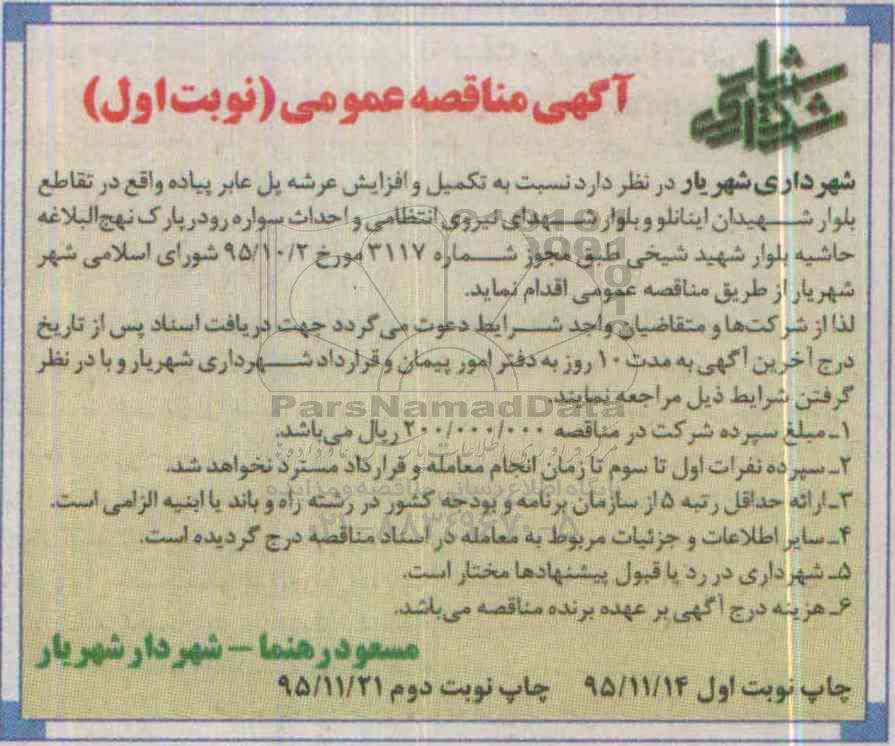 شهرداری شهریار
آگهی مناقصه عمومی (نوبت اول)
شهرداری شهریار در نظر دارد نسبت به تکمیل و افزایش عرشه پل عابر پیاده واقع در تقاطع
بلوار شهیدان اینانلو و بلوار شهدای نیروی انتظامی و احداث سواره رو در پارک نهج‌البلاغه
حاشیه بلوار شهید شیخی طبق مجوز شماره ۳۱۱۷ مورخ ۹۵/۱۰/۲ شورای اسلامی شهر
شهریار از طریق مناقصه عمومی اقدام نماید.
لذا از شرکت‌ها و متقاضیان واجد شرایط دعوت می‌گردد جهت دریافت اسناد پس از تاریخ
درج آخرین آگهی به مدت ۱۰ روز به دفتر امور پیمان و قرارداد شهرداری شهریار و با در نظر
گرفتن شرایط ذیل مراجعه نمایند.
ParsNamadData
۱ـ مبلغ سپرده شرکت در مناقصه ۲۰۰/۰۰۰/۰۰۰ ریال می‌باشد.
۲ـ سپرده نفرات اول تا سوم تا زمان انجام معامله و قرارداد مسترد نخواهد شد.
۳ـ ارائه حداقل رتبه ۵ از سازمان برنامه و بودجه کشور در رشته راه و باند یا ابنیه الزامی است.
۴ـ سایر اطلاعات و جزئیات مربوط به معامله در اسناد مناقصه درج گردیده است.
۵ـ شهرداری در رد یا قبول پیشنهادها مختار است.
۶ـ هزینه درج آگهی بر عهده برنده مناقصه می‌باشد.
مسعود رهنما – شهردار شهریار
چاپ نوبت اول ۹۵/۱۱/۱۴ چاپ نوبت دوم ۹۵/۱۱/۲۱